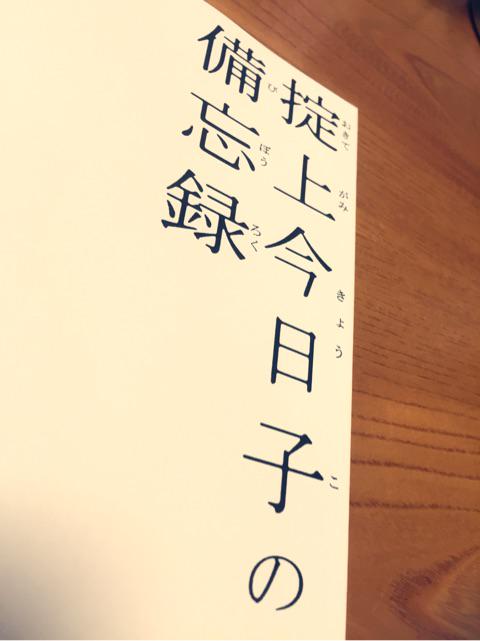 掟上今日子の
備忘録
おきて
がみ
きょう
こ
び
ぼう
ろく